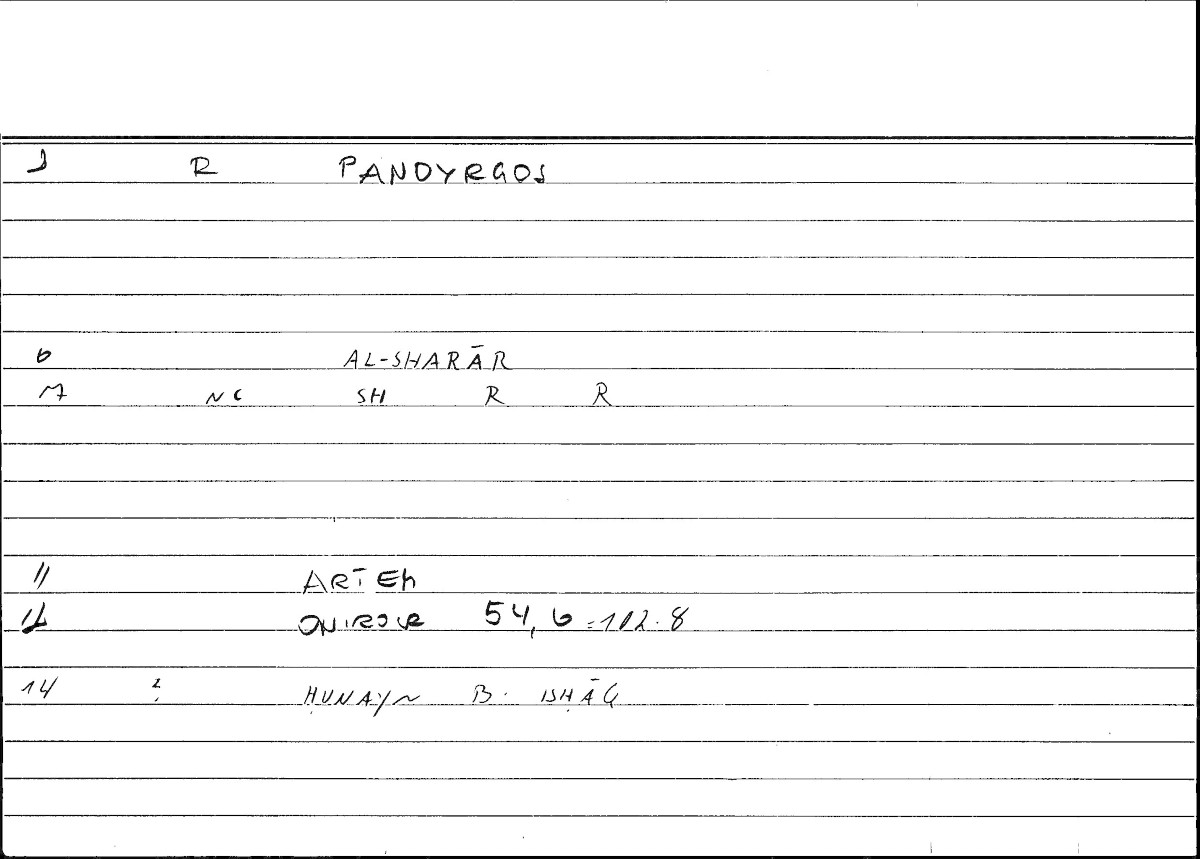 1 R PANDYRGOS
6 AL-SHARĀR
7 NC SH R R
11 ARTEM
12 ONIROCR 54,6=102.8
14 ? ḤUNAYN B. ISḤĀQ